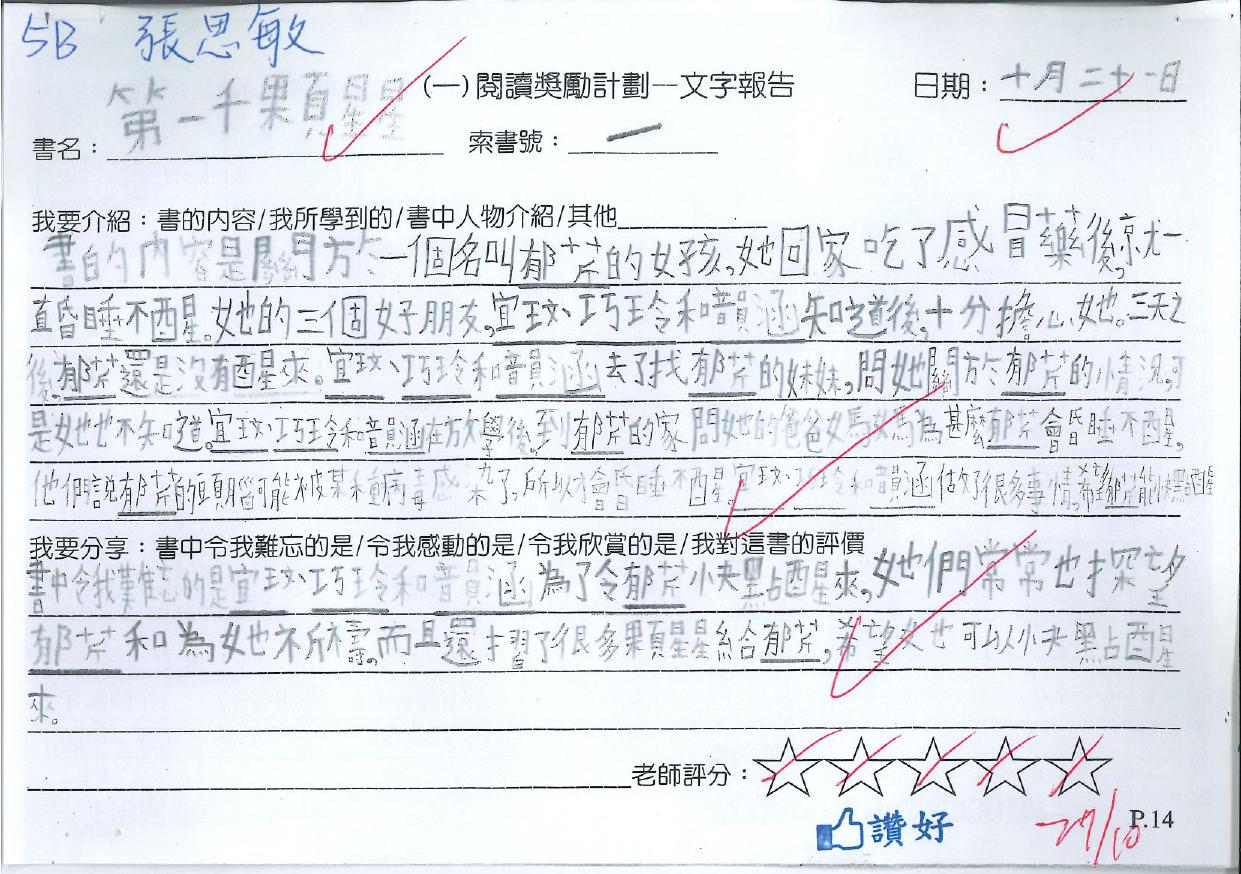 5B 張思敏
(一)閱讀獎勵計劃--文字報告 日期：十月二十一日
書名：第一千果頁星星 索書號：
我要介紹：書的內容/我所學到的/書中人物介紹/其他
書的內容是關於一個名叫郁芹的女孩，她回家吃了感冒藥後，就一
直昏睡不醒。她的三個好朋友，宜玟、巧玲和韻涵知道後，十分擔心她。三天之
後，郁芹還是沒有醒來。宜玟、巧玲和韻涵去了找郁芹的妹妹，問她關於郁芹的情況，可
是她也不知道。宜玟、巧玲和韻涵在放學後，到郁芹的家問她的爸爸媽媽為甚麼郁芹會昏睡不醒。
他們說郁芹的頭腦可能被某種病毒感染了，所以才會昏睡不醒。宜玟、巧玲和韻涵做了很多事情，希望郁芹能快點醒
我要分享：書中令我難忘的是/令我感動的是/令我欣賞的是/我對這書的評價
書中令我難忘的是宜玟、巧玲和韻涵為了令郁芹快點醒來，她們常常也探望
郁芹和為她祈禱。而且還摺了很多顆星星給郁芹，希望她可以快點醒
來。
老師評分：
讚好
27/10
P.14